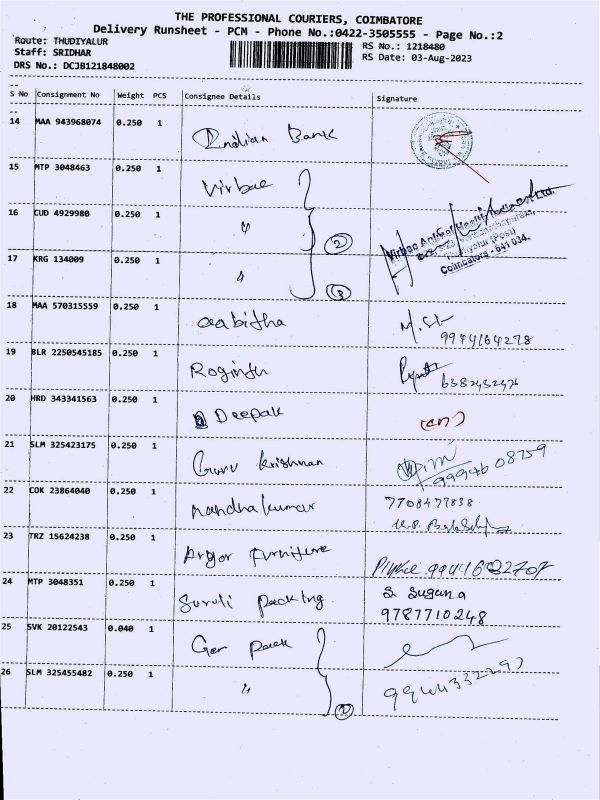 THE PROFESSIONAL COURIERS, COIMBATORE
Delivery Runsheet - PCM - Phone No.:0422-3505555 - Page No.:2
Route: THUDIYALUR
Staff: SRIDHAR
DRS No.: DCJB121848002
RS No.: 1218480
RS Date: 03-Aug-2023
S No Consignment No Weight PCS Consignee Details Signature
14 MAA 943968074 0.250 1 Indian Bank
15 MTP 3048463 0.250 1 Virbac
16 CUD 4929980 0.250 1 〃 2
Virbac Animal Health
Coimbatore - 641 034.
17 KRG 134009 0.250 1 〃
18 MAA 570315559 0.250 1 aabitha
19 BLR 2250545185 0.250 1 Roginth
20 HRD 343341563 0.250 1 Deepak
21 SLM 325423175 0.250 1 Guru krishnan 99940 08759
22 COK 23864040 0.250 1 nandhakumar 7708477838
23 TRZ 15624238 0.250 1 Argor Furniture
24 MTP 3048351 0.250 1 Suruli packing S Sugana
9787710248
25 SVK 20122543 0.040 1 Ger pack
26 SLM 325455482 0.250 1 〃